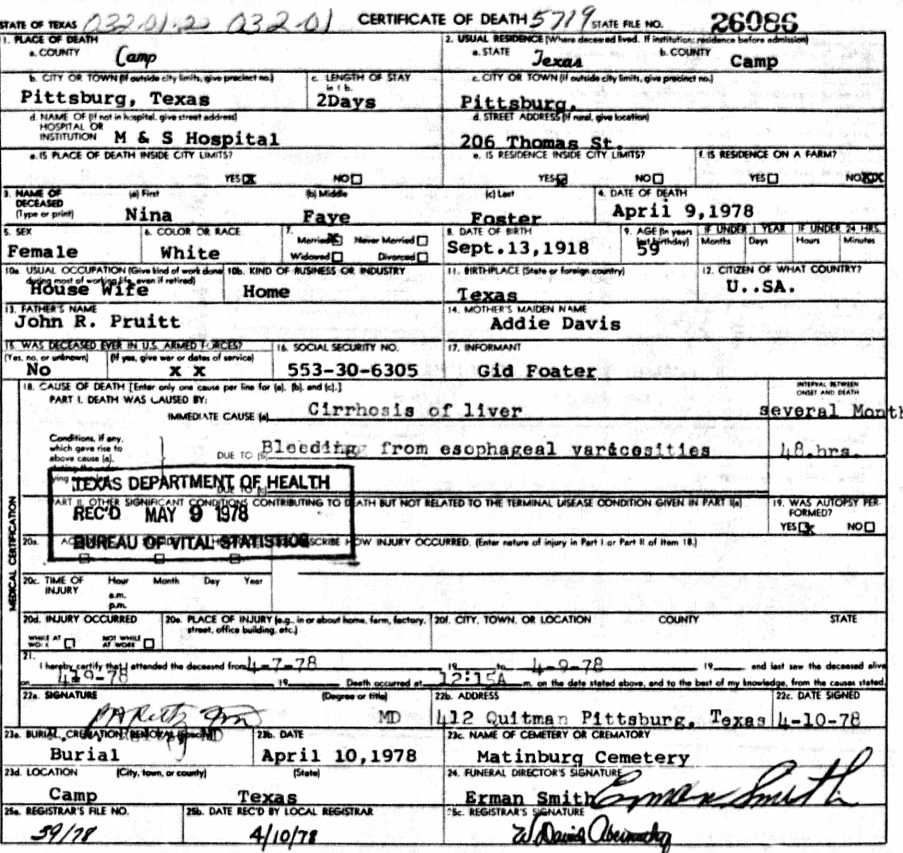 STATE OF TEXAS 032-01-20 032-01 CERTIFICATE OF DEATH 5719 STATE FILE NO. 26086
1. PLACE OF DEATH
a. COUNTY Camp
2. USUAL RESIDENCE (Where deceased lived. If institution: residence before admission)
a. STATE Texas b. COUNTY Camp
b. CITY OR TOWN (If outside city limits, give precinct no.) Pittsburg, Texas
c. LENGTH OF STAY in 1 b. 2Days
c. CITY OR TOWN (If outside city limits, give precinct no.) Pittsburg,
d. NAME OF (If not in hospital, give street address) HOSPITAL OR INSTITUTION M & S Hospital
d. STREET ADDRESS (If rural, give location) 206 Thomas St.
e. IS PLACE OF DEATH INSIDE CITY LIMITS? YES NO
e. IS RESIDENCE INSIDE CITY LIMITS? YES NO
f. IS RESIDENCE ON A FARM? YES NO
3. NAME OF DECEASED (Type or print)
(a) First Nina
(b) Middle Faye
(c) Last Foster
4. DATE OF DEATH April 9,1978
5. SEX Female
6. COLOR OR RACE White
7. Married Never Married Widowed Divorced
8. DATE OF BIRTH Sept.13,1918
9. AGE (In years last birthday) 59
IF UNDER 1 YEAR Months Days
IF UNDER 24 HRS. Hours Minutes
10a. USUAL OCCUPATION (Give kind of work done during most of working life, even if retired) House Wife
10b. KIND OF BUSINESS OR INDUSTRY Home
11. BIRTHPLACE (State or foreign country) Texas
12. CITIZEN OF WHAT COUNTRY? U..SA.
13. FATHER'S NAME John R. Pruitt
14. MOTHER'S MAIDEN NAME Addie Davis
15. WAS DECEASED EVER IN U.S. ARMED FORCES?
(Yes, no, or unknown) No
(If yes, give war or dates of service) x x
16. SOCIAL SECURITY NO. 553-30-6305
17. INFORMANT Gid Foater
MEDICAL CERTIFICATION
18. CAUSE OF DEATH [Enter only one cause per line for (a), (b), and (c).]
PART I. DEATH WAS CAUSED BY:
INTERVAL BETWEEN ONSET AND DEATH
IMMEDIATE CAUSE (a) Cirrhosis of liver several Month
Conditions, if any, which gave rise to above cause (a),
DUE TO (b) Bleeding from esophageal varicosities 48.hrs.
TEXAS DEPARTMENT OF HEALTH
REC'D MAY 9 1978
BUREAU OF VITAL STATISTICS
PART II. OTHER SIGNIFICANT CONDITIONS CONTRIBUTING TO DEATH BUT NOT RELATED TO THE TERMINAL DISEASE CONDITION GIVEN IN PART I(a)
19. WAS AUTOPSY PERFORMED? YES NO
20a. DESCRIBE HOW INJURY OCCURRED. (Enter nature of injury in Part I or Part II of Item 18.)
20c. TIME OF INJURY Hour Month Day Year
a.m.
p.m.
20d. INJURY OCCURRED
WHILE AT WORK NOT WHILE AT WORK
20e. PLACE OF INJURY (e.g., in or about home, farm, factory, street, office building, etc.)
20f. CITY, TOWN, OR LOCATION COUNTY STATE
21. I hereby certify that I attended the deceased from 4-7-78 19 to 4-9-78 19 and last saw the deceased alive
on 19 Death occurred at 12:15A m. on the date stated above, and to the best of my knowledge, from the causes stated.
22a. SIGNATURE (Degree or title) MD
22b. ADDRESS 412 Quitman Pittsburg, Texas
22c. DATE SIGNED 4-10-78
23a. BURIAL, CREMATION, REMOVAL Burial
23b. DATE April 10,1978
23c. NAME OF CEMETERY OR CREMATORY Matinburg Cemetery
23d. LOCATION (City, town, or county) (State) Camp Texas
24. FUNERAL DIRECTOR'S SIGNATURE Erman Smith Erman Smith
25a. REGISTRAR'S FILE NO. 39/78
25b. DATE REC'D BY LOCAL REGISTRAR 4/10/78
25c. REGISTRAR'S SIGNATURE W. David